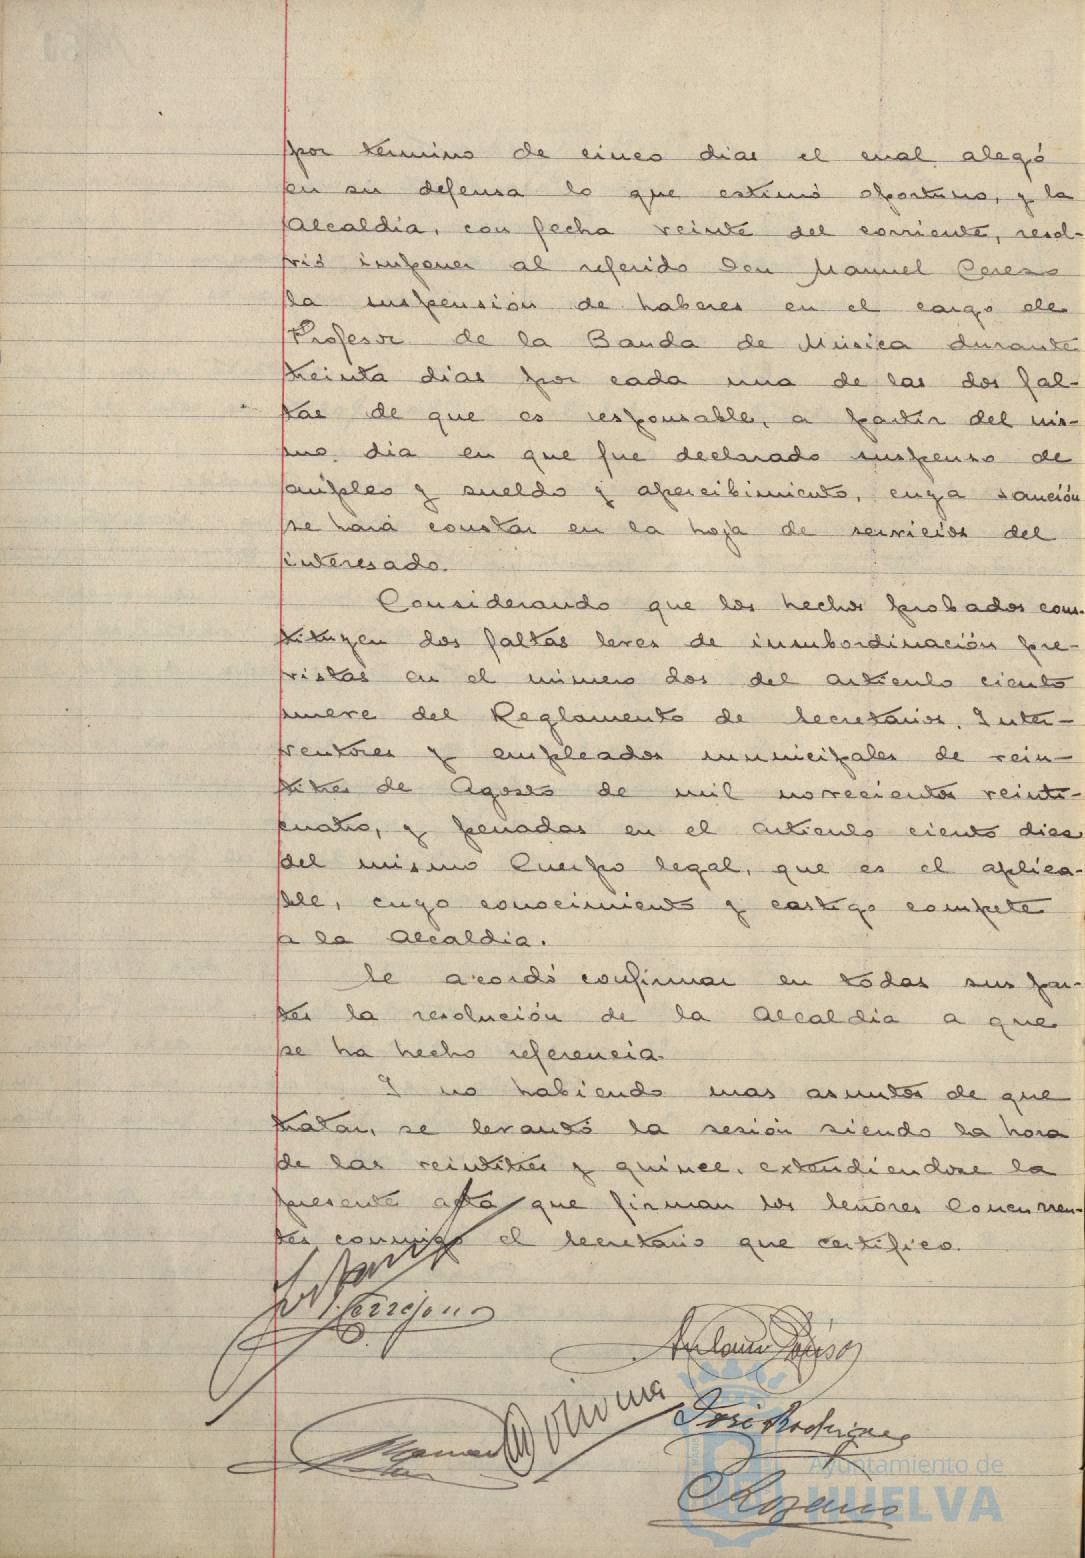 por termino de cinco dias el cual alegó
en su defensa lo que estimó oportuno, y la
Alcaldia, con fecha veinte del corriente, resol-
vió imponer al referido Don Manuel Cerezo
la suspensión de haberes en el cargo de
Profesor de la Banda de Música durante
treinta dias por cada una de las dos fal-
tas de que es responsable, a partir del mis-
mo dia en que fue declarado suspenso de
empleo y sueldo y apercibimiento, cuya sanción
se hará constar en la hoja de servicios del
interesado.
Considerando que los hechos probados cons-
tituyen dos faltas leves de insubordinación pre-
vistas en el número dos del articulo ciento
nueve del Reglamento de Secretarios, Inter-
ventores y empleados municipales de vein-
titres de Agosto de mil novecientos veinti-
cuatro, y penadas en el articulo ciento diez
del mismo Cuerpo legal, que es el aplica-
ble, cuyo conocimiento y castigo compete
a la Alcaldia.
Se acordó confirmar en todas sus par-
tes la resolución de la Alcaldia a que
se ha hecho referencia.
Y no habiendo mas asuntos de que
tratar, se levantó la sesión siendo la hora
de las veintitres y quince, extendiendose la
presente acta que firman los Señores Concurren-
tes conmigo el Secretario que certifico.
Antonio
José Rodriguez
Manuel
Lozano
Ayuntamiento de
HUELVA